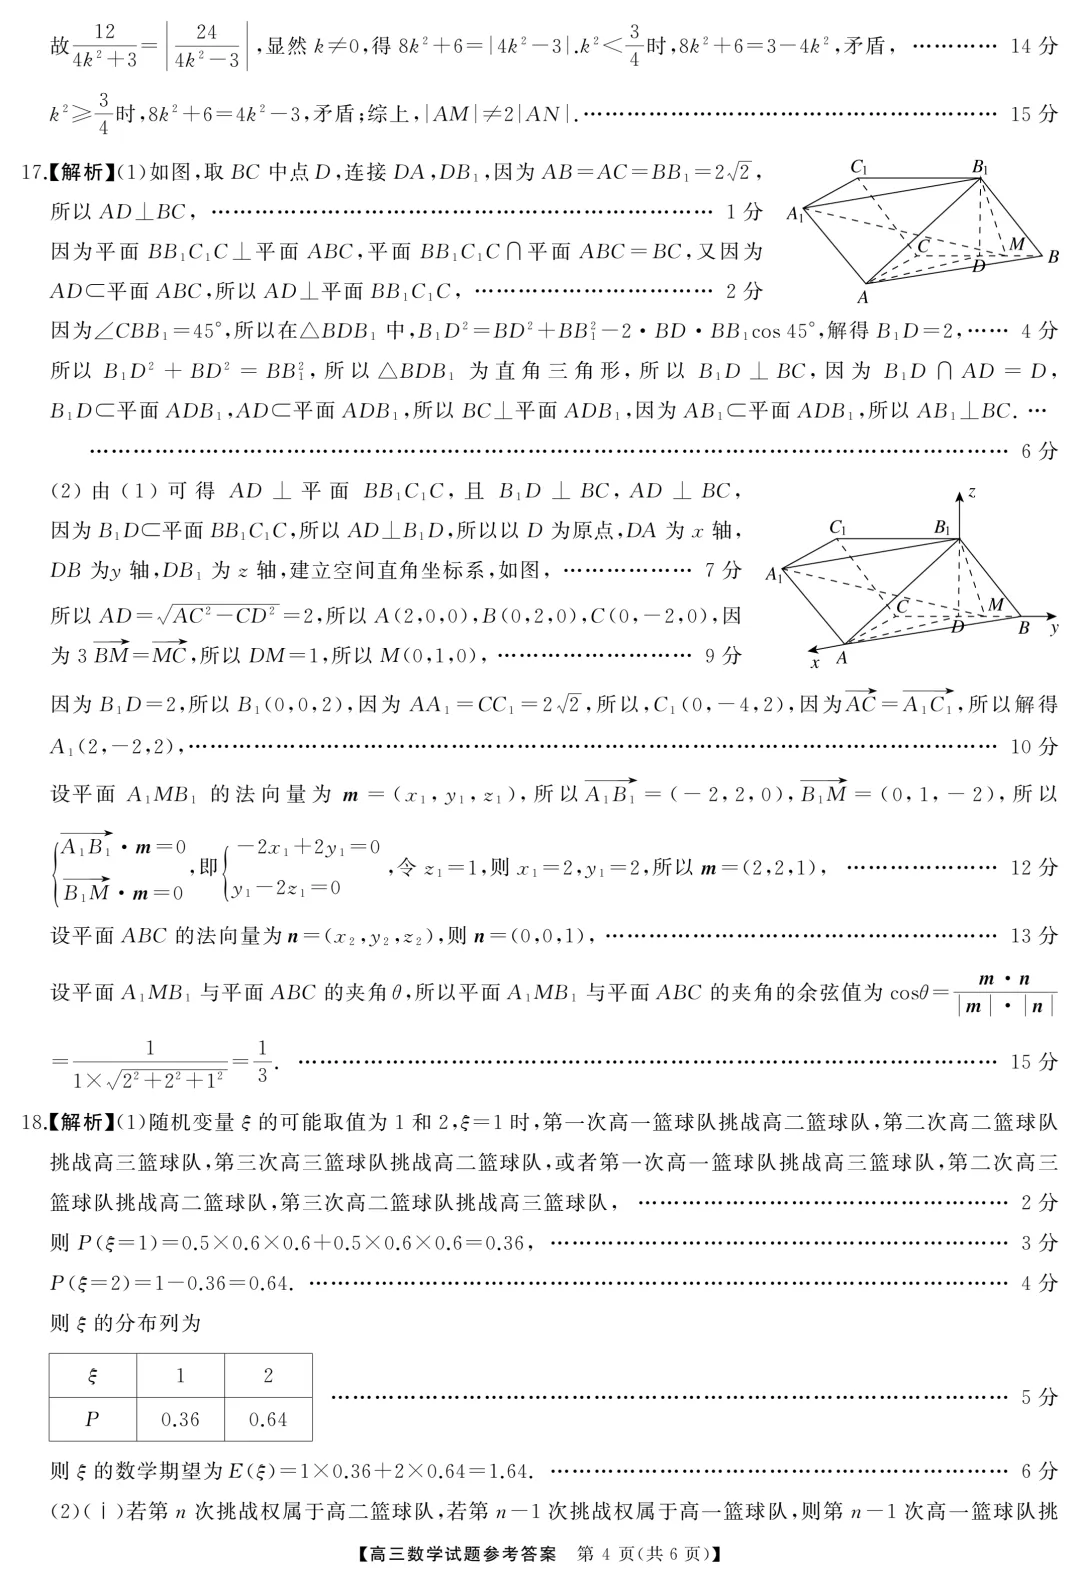 故12/(4k²+3)=|24/(4k²-3)|,显然 k≠0,得 8k²+6=|4k²-3|.k²<3/4时,8k²+6=3-4k²,矛盾, ………… 14 分
k²≥3/4时,8k²+6=4k²-3,矛盾;综上,|AM|≠2|AN|. ………… 15 分
17.【解析】(1)如图,取 BC 中点 D,连接 DA,DB₁,因为 AB=AC=BB₁=2√2,
所以 AD⊥BC, ………… 1 分
因为平面 BB₁C₁C⊥平面 ABC,平面 BB₁C₁C∩平面 ABC=BC,又因为
AD⊂平面 ABC,所以 AD⊥平面 BB₁C₁C, ………… 2 分
C₁ B₁ A₁ C M D B A
因为∠CBB₁=45°,所以在△BDB₁ 中,B₁D²=BD²+BB₁²-2·BD·BB₁cos 45°,解得 B₁D=2, …… 4 分
所以 B₁D²+BD²=BB₁²,所以△BDB₁ 为直角三角形,所以 B₁D⊥BC,因为 B₁D∩AD=D,
B₁D⊂平面 ADB₁,AD⊂平面 ADB₁,所以 BC⊥平面 ADB₁,因为 AB₁⊂平面 ADB₁,所以 AB₁⊥BC. …
………… 6 分
(2)由(1)可得 AD⊥平面 BB₁C₁C,且 B₁D⊥BC,AD⊥BC,
因为 B₁D⊂平面 BB₁C₁C,所以 AD⊥B₁D,所以以 D 为原点,DA 为 x 轴,
DB 为y 轴,DB₁ 为 z 轴,建立空间直角坐标系,如图, ………… 7 分
所以 AD=√(AC²-CD²)=2,所以 A(2,0,0),B(0,2,0),C(0,-2,0),因
为 3BM→=MC→,所以 DM=1,所以 M(0,1,0), ………… 9 分
z C₁ B₁ A₁ C M D B y x A
因为 B₁D=2,所以 B₁(0,0,2),因为 AA₁=CC₁=2√2,所以,C₁(0,-4,2),因为AC→=A₁C₁→,所以解得
A₁(2,-2,2), ………… 10 分
设平面 A₁MB₁ 的法向量为 m=(x₁,y₁,z₁),所以A₁B₁→=(-2,2,0),B₁M→=(0,1,-2),所以
{A₁B₁→·m=0 B₁M→·m=0,即{-2x₁+2y₁=0 y₁-2z₁=0,令 z₁=1,则 x₁=2,y₁=2,所以 m=(2,2,1), ………… 12 分
设平面 ABC 的法向量为n=(x₂,y₂,z₂),则 n=(0,0,1), ………… 13 分
设平面 A₁MB₁ 与平面 ABC 的夹角θ,所以平面 A₁MB₁ 与平面 ABC 的夹角的余弦值为 cosθ=m·n/(|m|·|n|)
=1/(1×√(2²+2²+1²))=1/3. ………… 15 分
18.【解析】(1)随机变量 ξ 的可能取值为 1 和 2,ξ=1 时,第一次高一篮球队挑战高二篮球队,第二次高二篮球队
挑战高三篮球队,第三次高三篮球队挑战高二篮球队,或者第一次高一篮球队挑战高三篮球队,第二次高三
篮球队挑战高二篮球队,第三次高二篮球队挑战高三篮球队, ………… 2 分
则 P(ξ=1)=0.5×0.6×0.6+0.5×0.6×0.6=0.36, ………… 3 分
P(ξ=2)=1-0.36=0.64. ………… 4 分
则 ξ 的分布列为
ξ 1 2
………… 5 分
P 0.36 0.64
则 ξ 的数学期望为 E(ξ)=1×0.36+2×0.64=1.64. ………… 6 分
(2)(ⅰ)若第 n 次挑战权属于高二篮球队,若第 n-1 次挑战权属于高一篮球队,则第 n-1 次高一篮球队挑
【高三数学试题参考答案 第 4 页(共 6 页)】